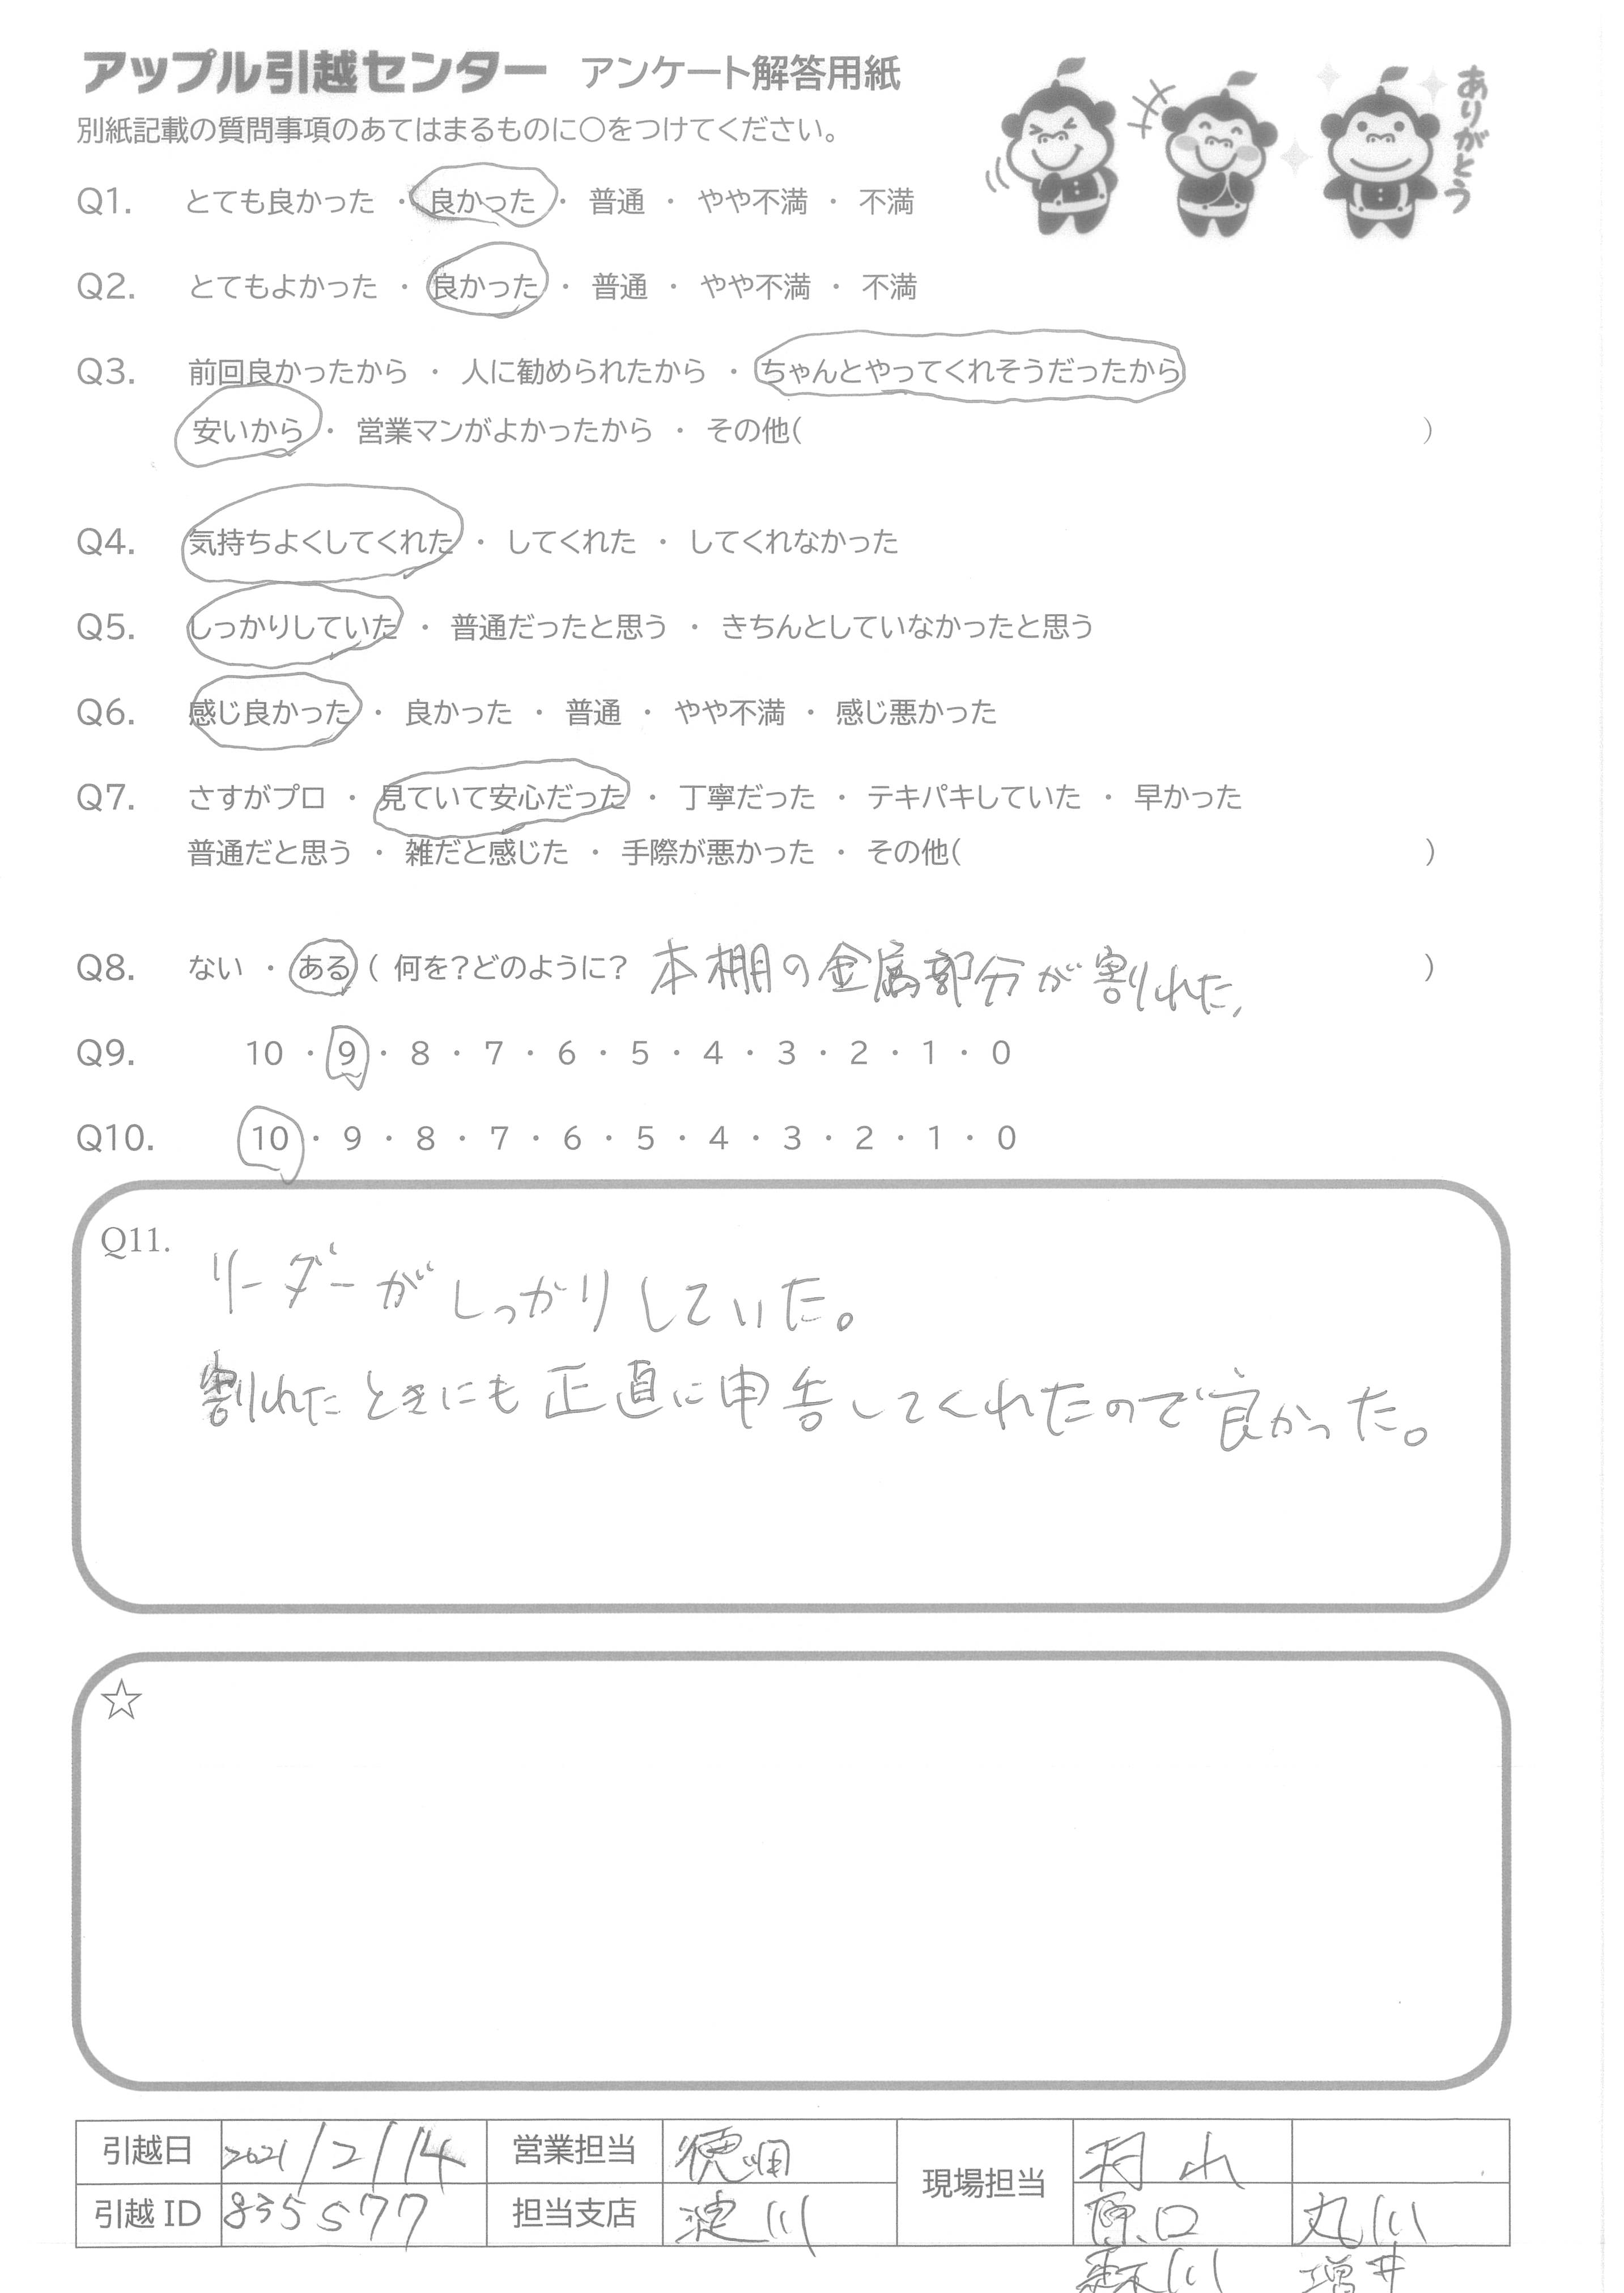 アップル引越センター アンケート解答用紙
別紙記載の質問事項のあてはまるものに○をつけてください。
ありがとう
Q1. とても良かった ・ 良かった ・ 普通 ・ やや不満 ・ 不満
Q2. とてもよかった ・ 良かった ・ 普通 ・ やや不満 ・ 不満
Q3. 前回良かったから ・ 人に勧められたから ・ ちゃんとやってくれそうだったから
安いから ・ 営業マンがよかったから ・ その他( )
Q4. 気持ちよくしてくれた ・ してくれた ・ してくれなかった
Q5. しっかりしていた ・ 普通だったと思う ・ きちんとしていなかったと思う
Q6. 感じ良かった ・ 良かった ・ 普通 ・ やや不満 ・ 感じ悪かった
Q7. さすがプロ ・ 見ていて安心だった ・ 丁寧だった ・ テキパキしていた ・ 早かった
普通だと思う ・ 雑だと感じた ・ 手際が悪かった ・ その他( )
Q8. ない ・ ある ( 何を?どのように? 本棚の金属部分が割れた。 )
Q9. 10 ・ 9 ・ 8 ・ 7 ・ 6 ・ 5 ・ 4 ・ 3 ・ 2 ・ 1 ・ 0
Q10. 10 ・ 9 ・ 8 ・ 7 ・ 6 ・ 5 ・ 4 ・ 3 ・ 2 ・ 1 ・ 0
Q11.
リーダーがしっかりしていた。
割れたときにも正直に申告してくれたので良かった。
☆
引越日 2021/2/14 営業担当 徳畑 現場担当 村山
引越ID 835577 担当支店 淀川 原口 丸川
森川 増井